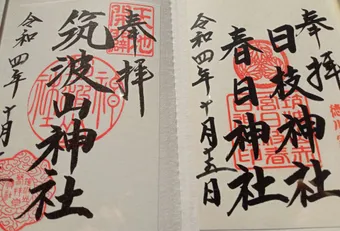 奉拝
日枝神社
春日神社
令和四年十月十五日
奉拝
筑波山神社
令和四年十月